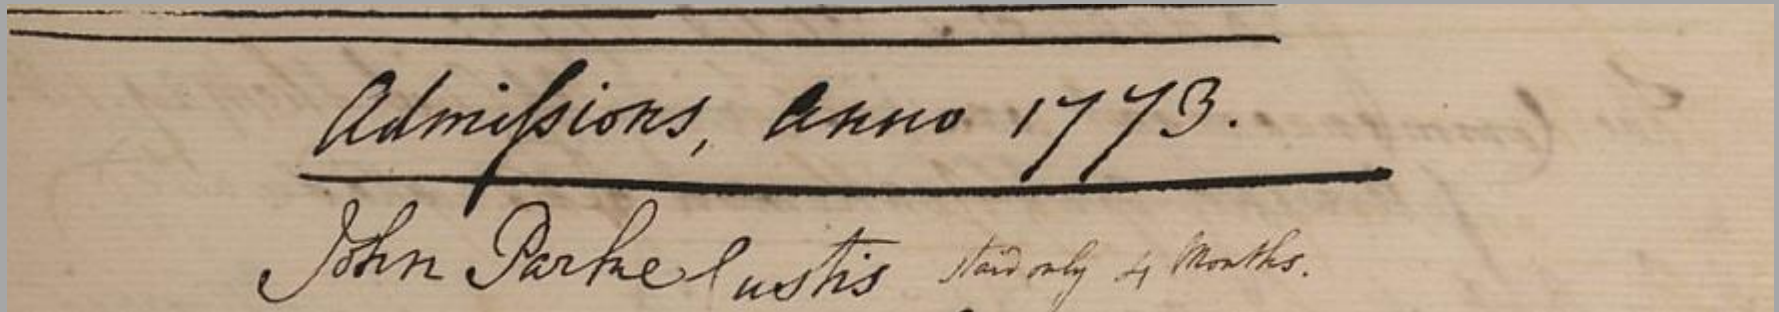 Admiſsions, Anno 1773.
John Parke Custis staid only 4 Months.